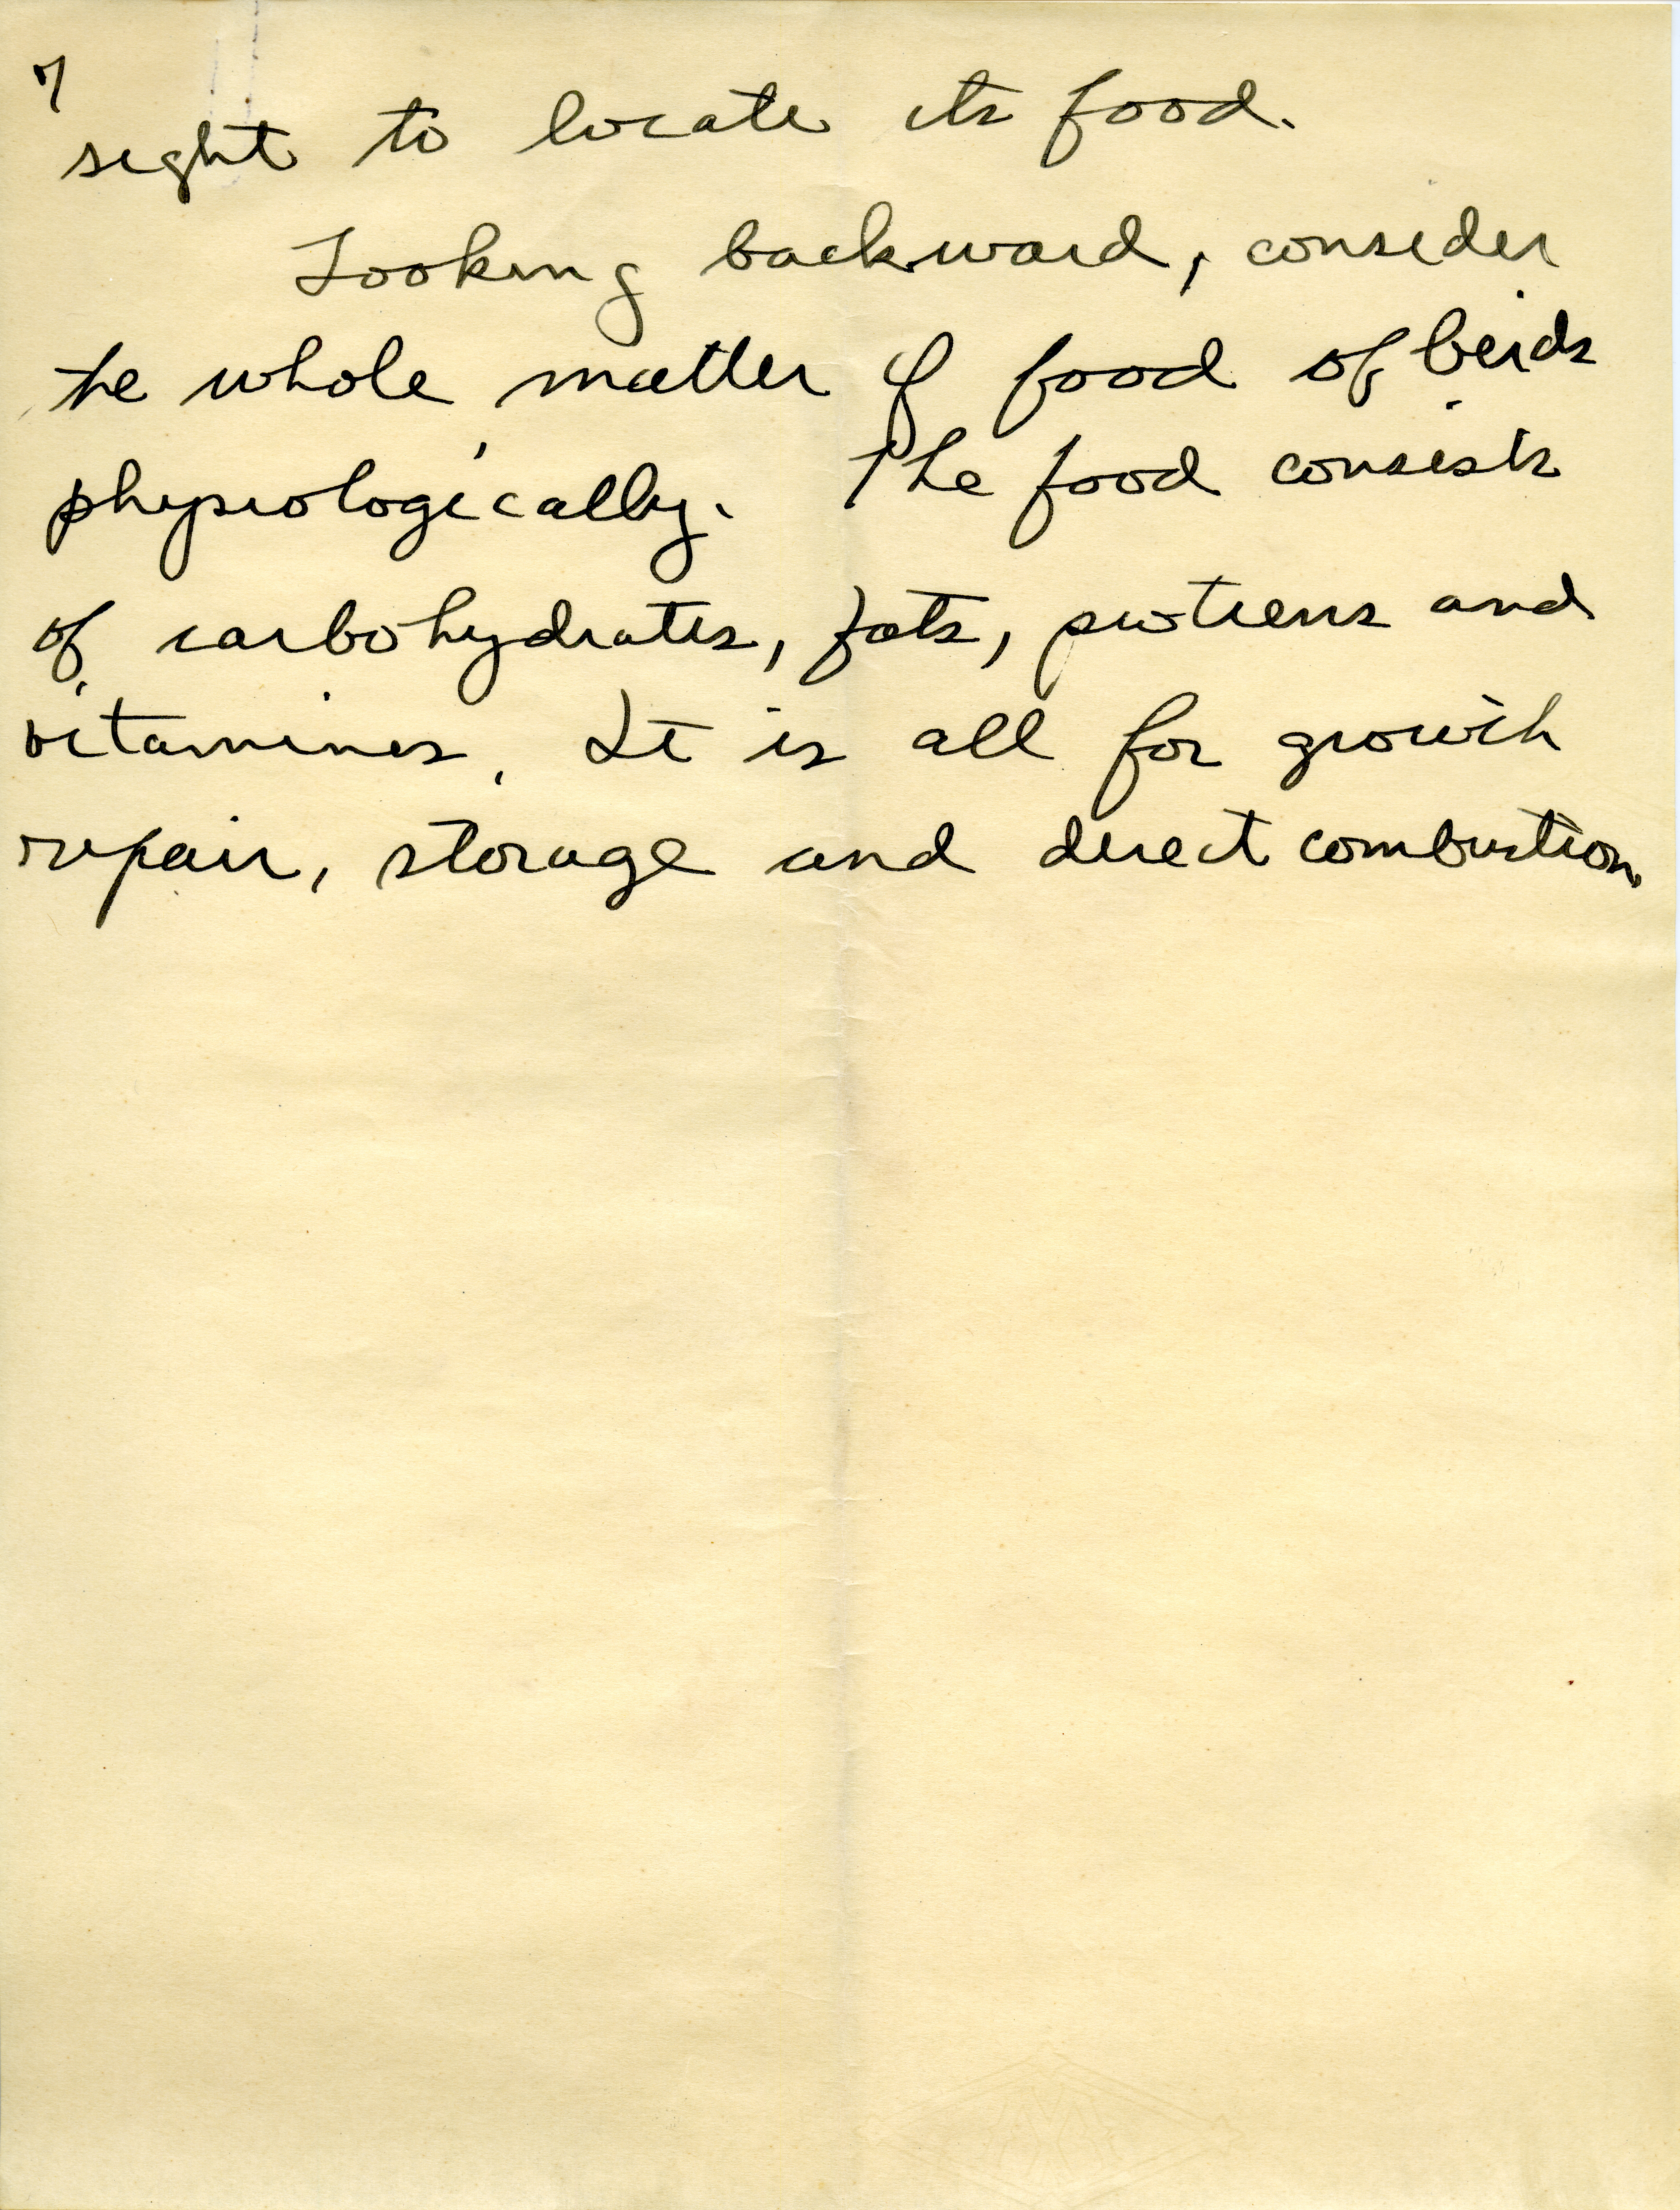 7
sight to locate its food.
Looking backward, consider
the whole matter of food of birds
physiologically. The food consists
of carbohydrates, fats, protiens and
vitamines. It is all for growth
repair, storage and direct combustion.